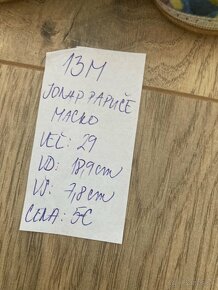 13M
JONAP PAPUČE
MACKO
VEĽ: 29
VD: 18,9cm
VŠ: 7,8cm
CENA: 5€